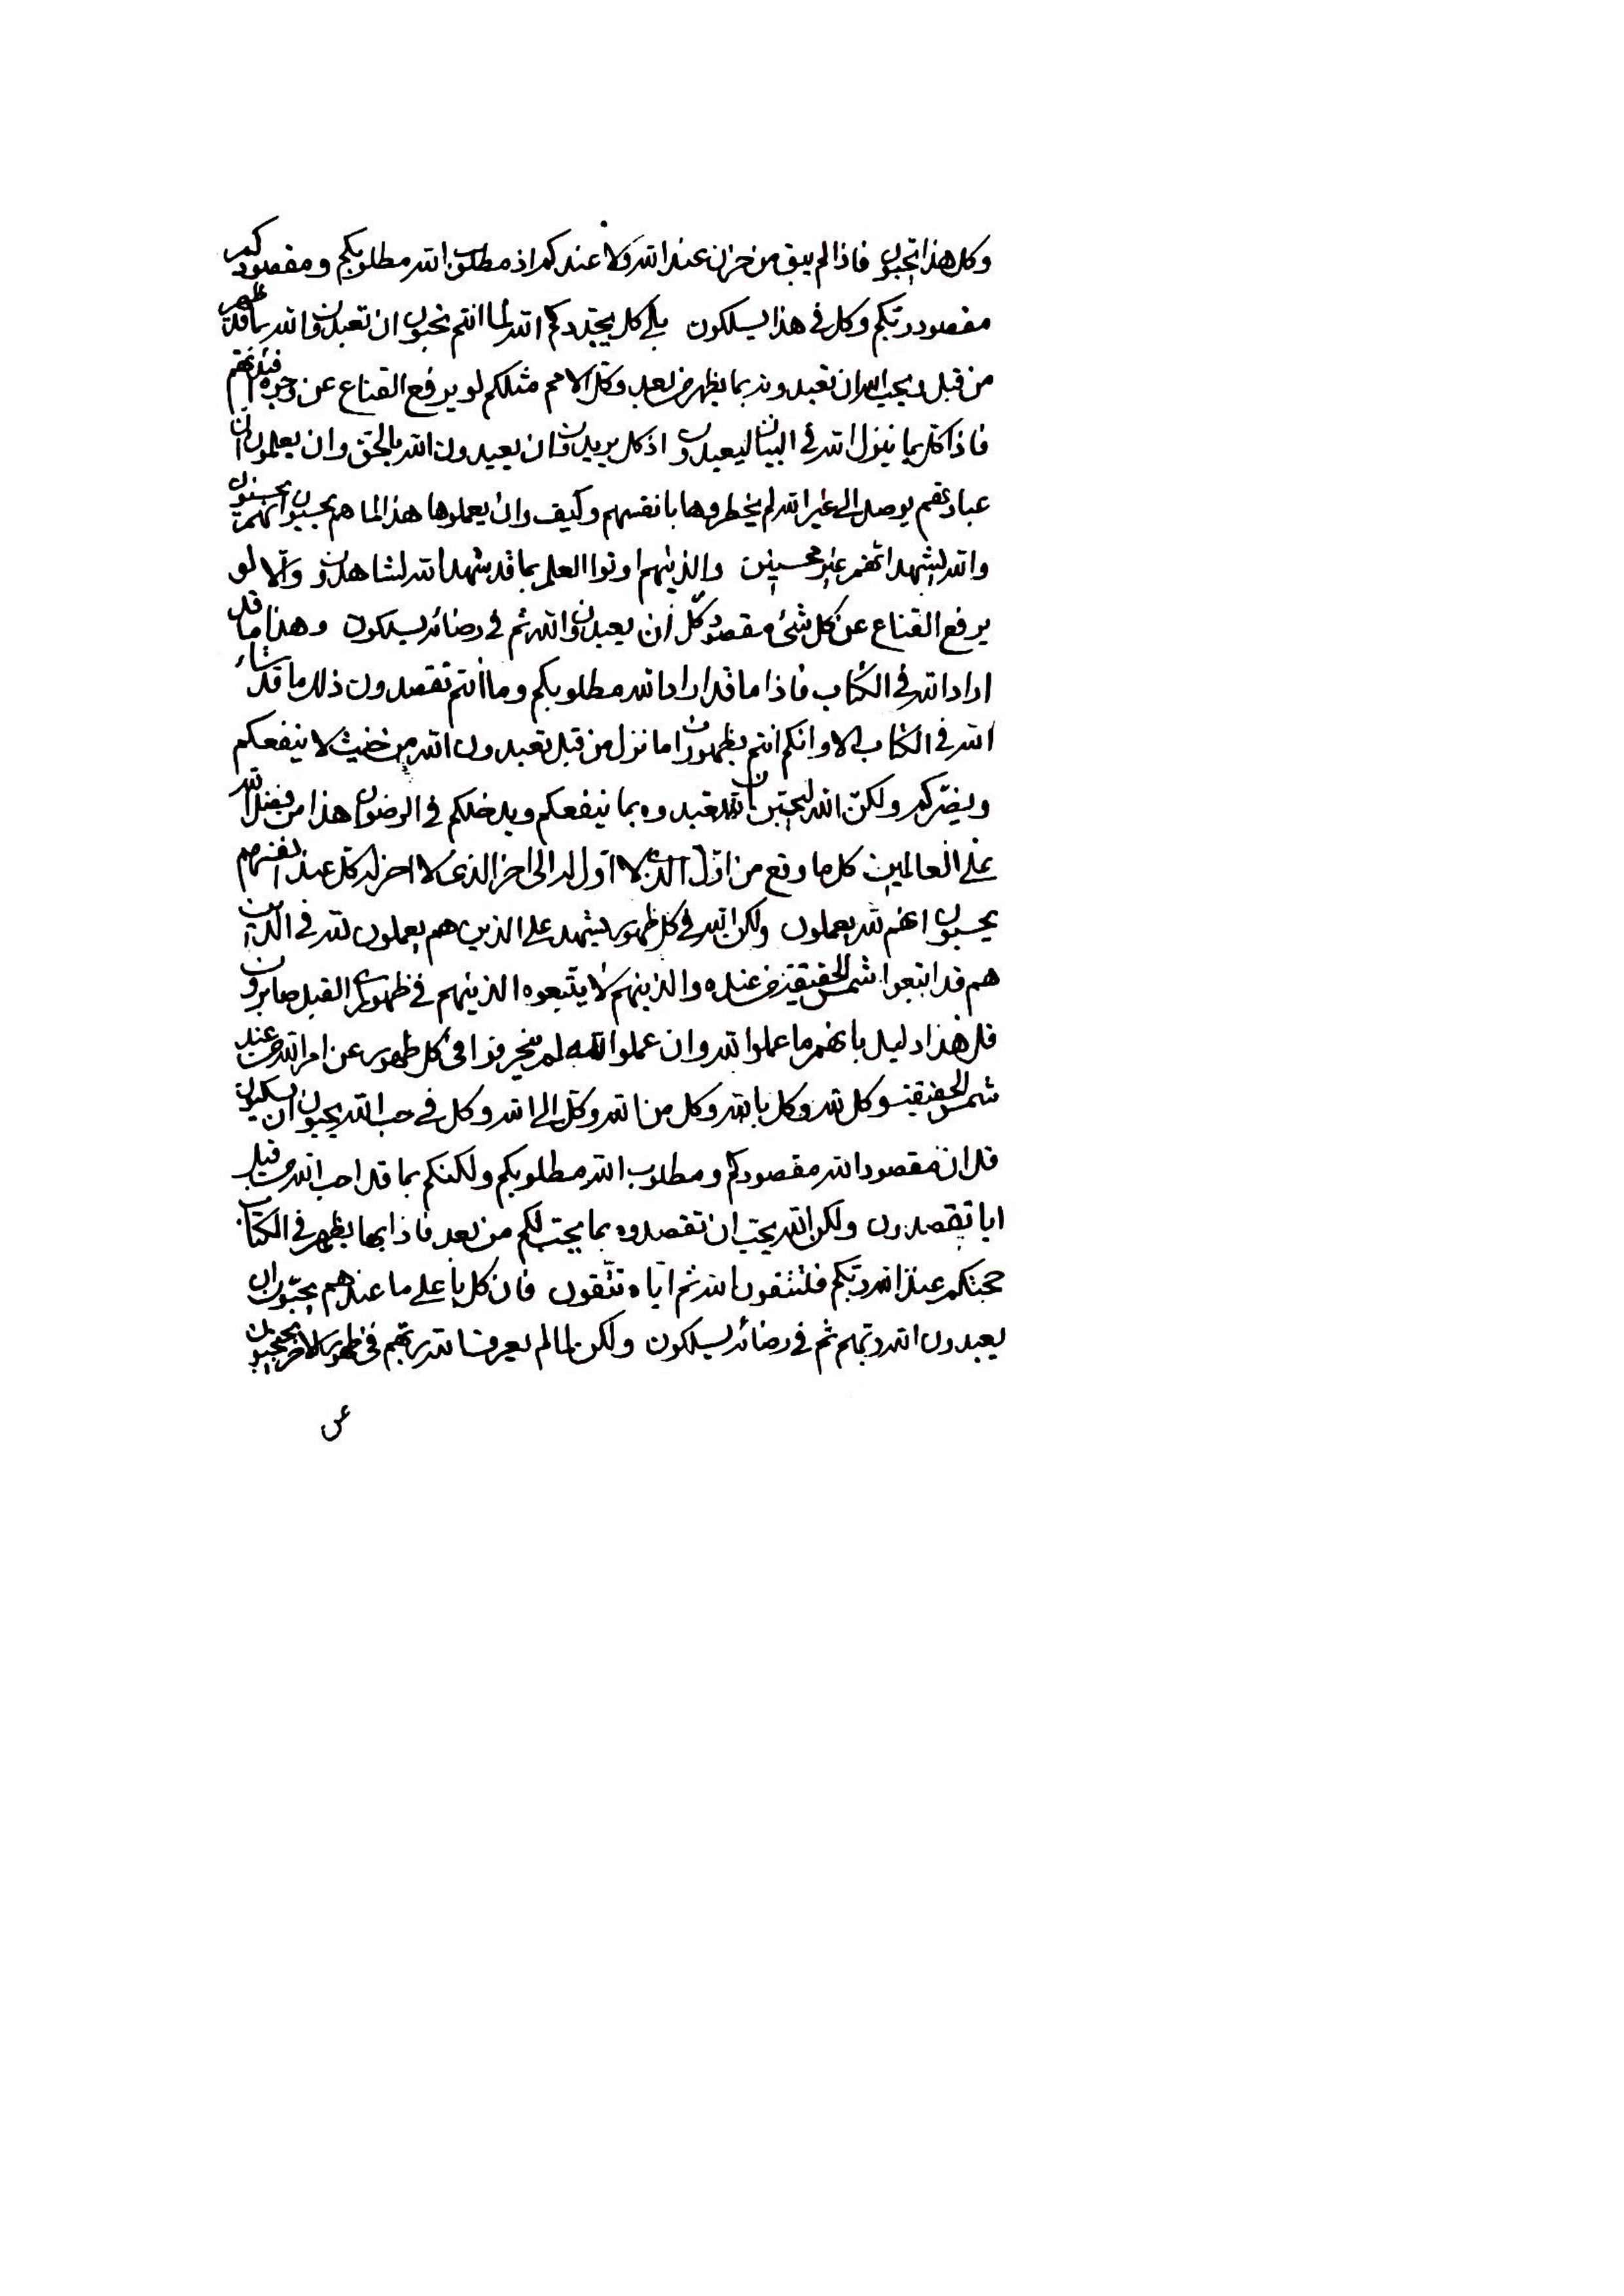 وكل هذا تحبون فاذا لم يبق من حزن عند الله ولا عندكم اذ مطلوب الله مطلوبكم ومقصودكم
مقصود ربكم وكل في هذا يسلكون بلى كل يجددكم الله لما انتم تحبون ان تعبدون الله بما قد ظهر
من قبل ويحب الله ان تعبدونه بما يظهر من بعد وكل الامم مثلكم لو يرفع القناع عن وجوه افئدتهم
فاذا كل بما ينزل الله في البيان ليعبدون اذ كل يريدون ان يعبدون الله بالحق وان يعلمون ان
عبادتهم يوصل الى غير الله لم يخطروها بانفسهم وكيف وان يعملوها هذا لما هم يحسبون انهم محسنون
والله ليشهد انهم غير محسنين والذينهم اوتوا العلم بما قد شهد الله لشاهدون والا لو
يرفع القناع عن كل شئ مقصود كل ان يعبدون الله ثم في رضائه يسلكون وهذا ما قد
اراد الله في الكتاب فاذا ما قد اراد الله مطلوبكم وما انتم تقصدون ذلك ما قد شاء
الله في الكتاب الا وانكم انتم بظهورات ما نزل من قبل تعبدون الله من حيث لا ينفعكم
ويضركم ولكن الله ليحبن ان تعبدوه بما ينفعكم ويدخلكم في الرضوان هذا من فضل الله
على العالمين كل ما وقع من اول الذي لا اول له الى اخر الذي لا اخر له كل عند انفسهم
يحسبون انهم لله يعملون ولكن الله في كل ظهور ليشهد على الذين هم يعملون لله في الذين
هم قد اتبعوا شمس الحقيقة من عنده والذينهم لا يتبعوه الذينهم في ظهور القبل صابرون
قل هذا دليل بانهم ما عملوا لله وان عملوا لله لم ينحرفوا في كل ظهور عن امر الله من عند
شمس الحقيقة وكل لله وكل بالله وكل من الله وكل الى الله وكل في حب الله يحبون ان يسلكون
قل ان مقصود الله مقصودكم ومطلوب الله مطلوبكم ولكنكم بما قد احب الله من قبل
اياه تقصدون ولكن الله يحب ان تقصدوه بما يحب لكم من بعد فاذا بما يظهر في الكتاب
حجتكم عند الله ربكم فلتتقون الله ثم اياه تتقون فان كلا على ما عندهم يحبون ان
يعبدون الله ربهم ثم في رضائه يسلكون ولكن لما لم يعرف الله ربهم في ظهور الاخر يحتجبون